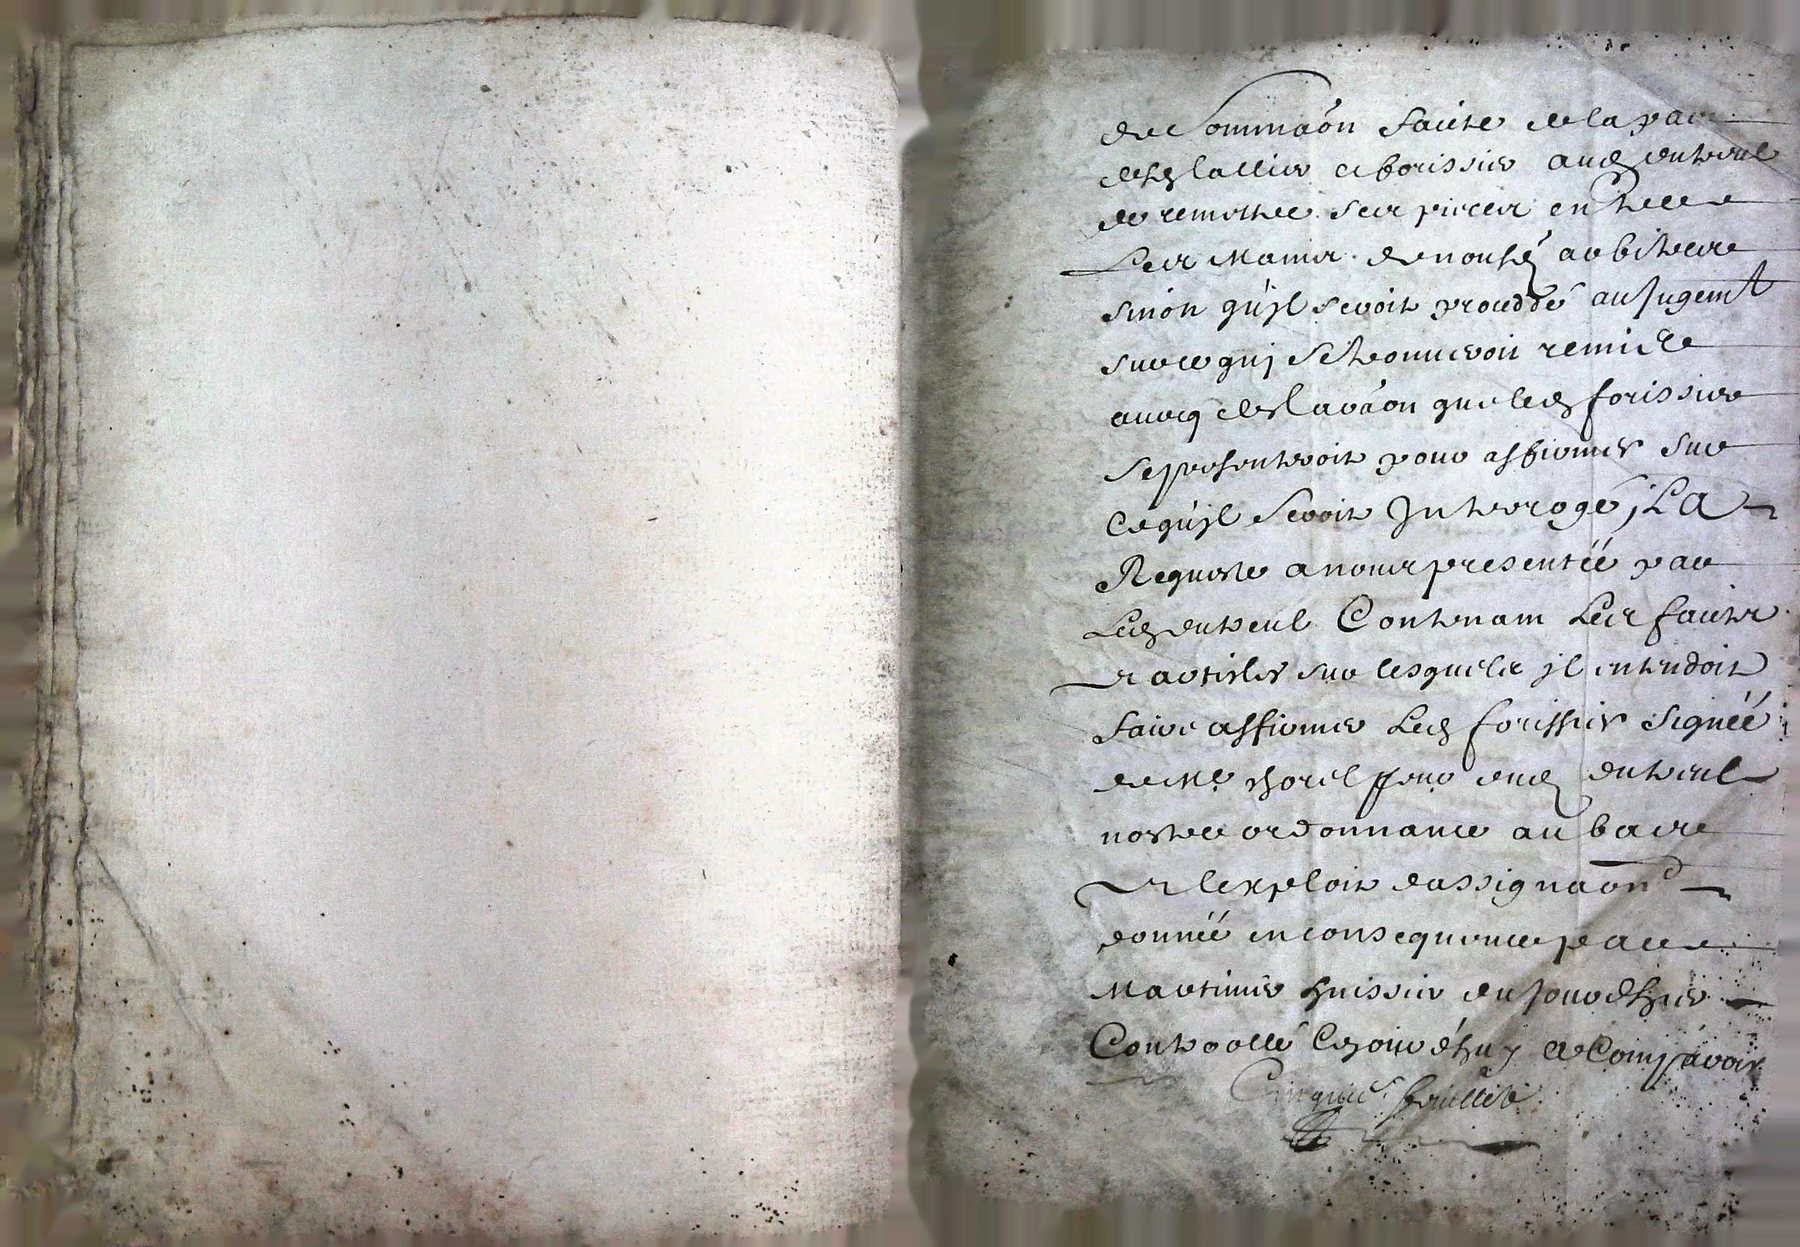 de Sommaõn faicte de la part
desd lallier & forissier aud duteuil
de remettre ses pieces entre
les mains de nousd arbitre
sinon qu'jl seroit proceddé au jugemt
sur ce quj se trouueroit remis &
auecq declaraõn que led forissier
se presenteroit pour affirmer sur
ce qu'jl seroit Interrogé; La
Requeste a nous presentéé par
led duteuil Contenant les faicts
& articles sur lesquels jl entendoit
faire affirmer led forissier signéé
de Me horel pr dud duteuil
nostre ordonnance au bas
& lexploit dassignaõn
donnéé en consequence par
Martinier huissier du jour d'hier
Controollé Cejourd'huy & Comparoir
Cinquie feuillet